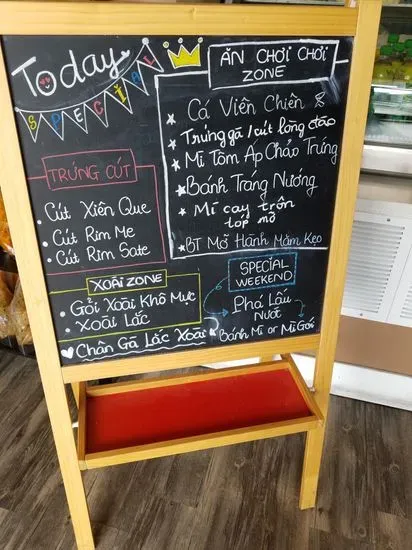 Today
SPECIAL
ĂN CHƠI CHƠI
ZONE
Cá Viên Chiên
Trứng gà / cút lòng đào
Mì Tôm Áp Chảo Trứng
Bánh Tráng Nướng
Mì cay trộn
tóp mỡ
BT Mỡ Hành Mắm Kẹo
TRỨNG CÚT
Cút Xiên Que
Cút Rim Me
Cút Rim Sate
XOÀI ZONE
Gỏi Xoài Khô Mực
Xoài Lắc
Chân Gà Lắc Xoài
SPECIAL
WEEKEND
Phá Lấu
Nướt
Bánh Mì or Mì Gói